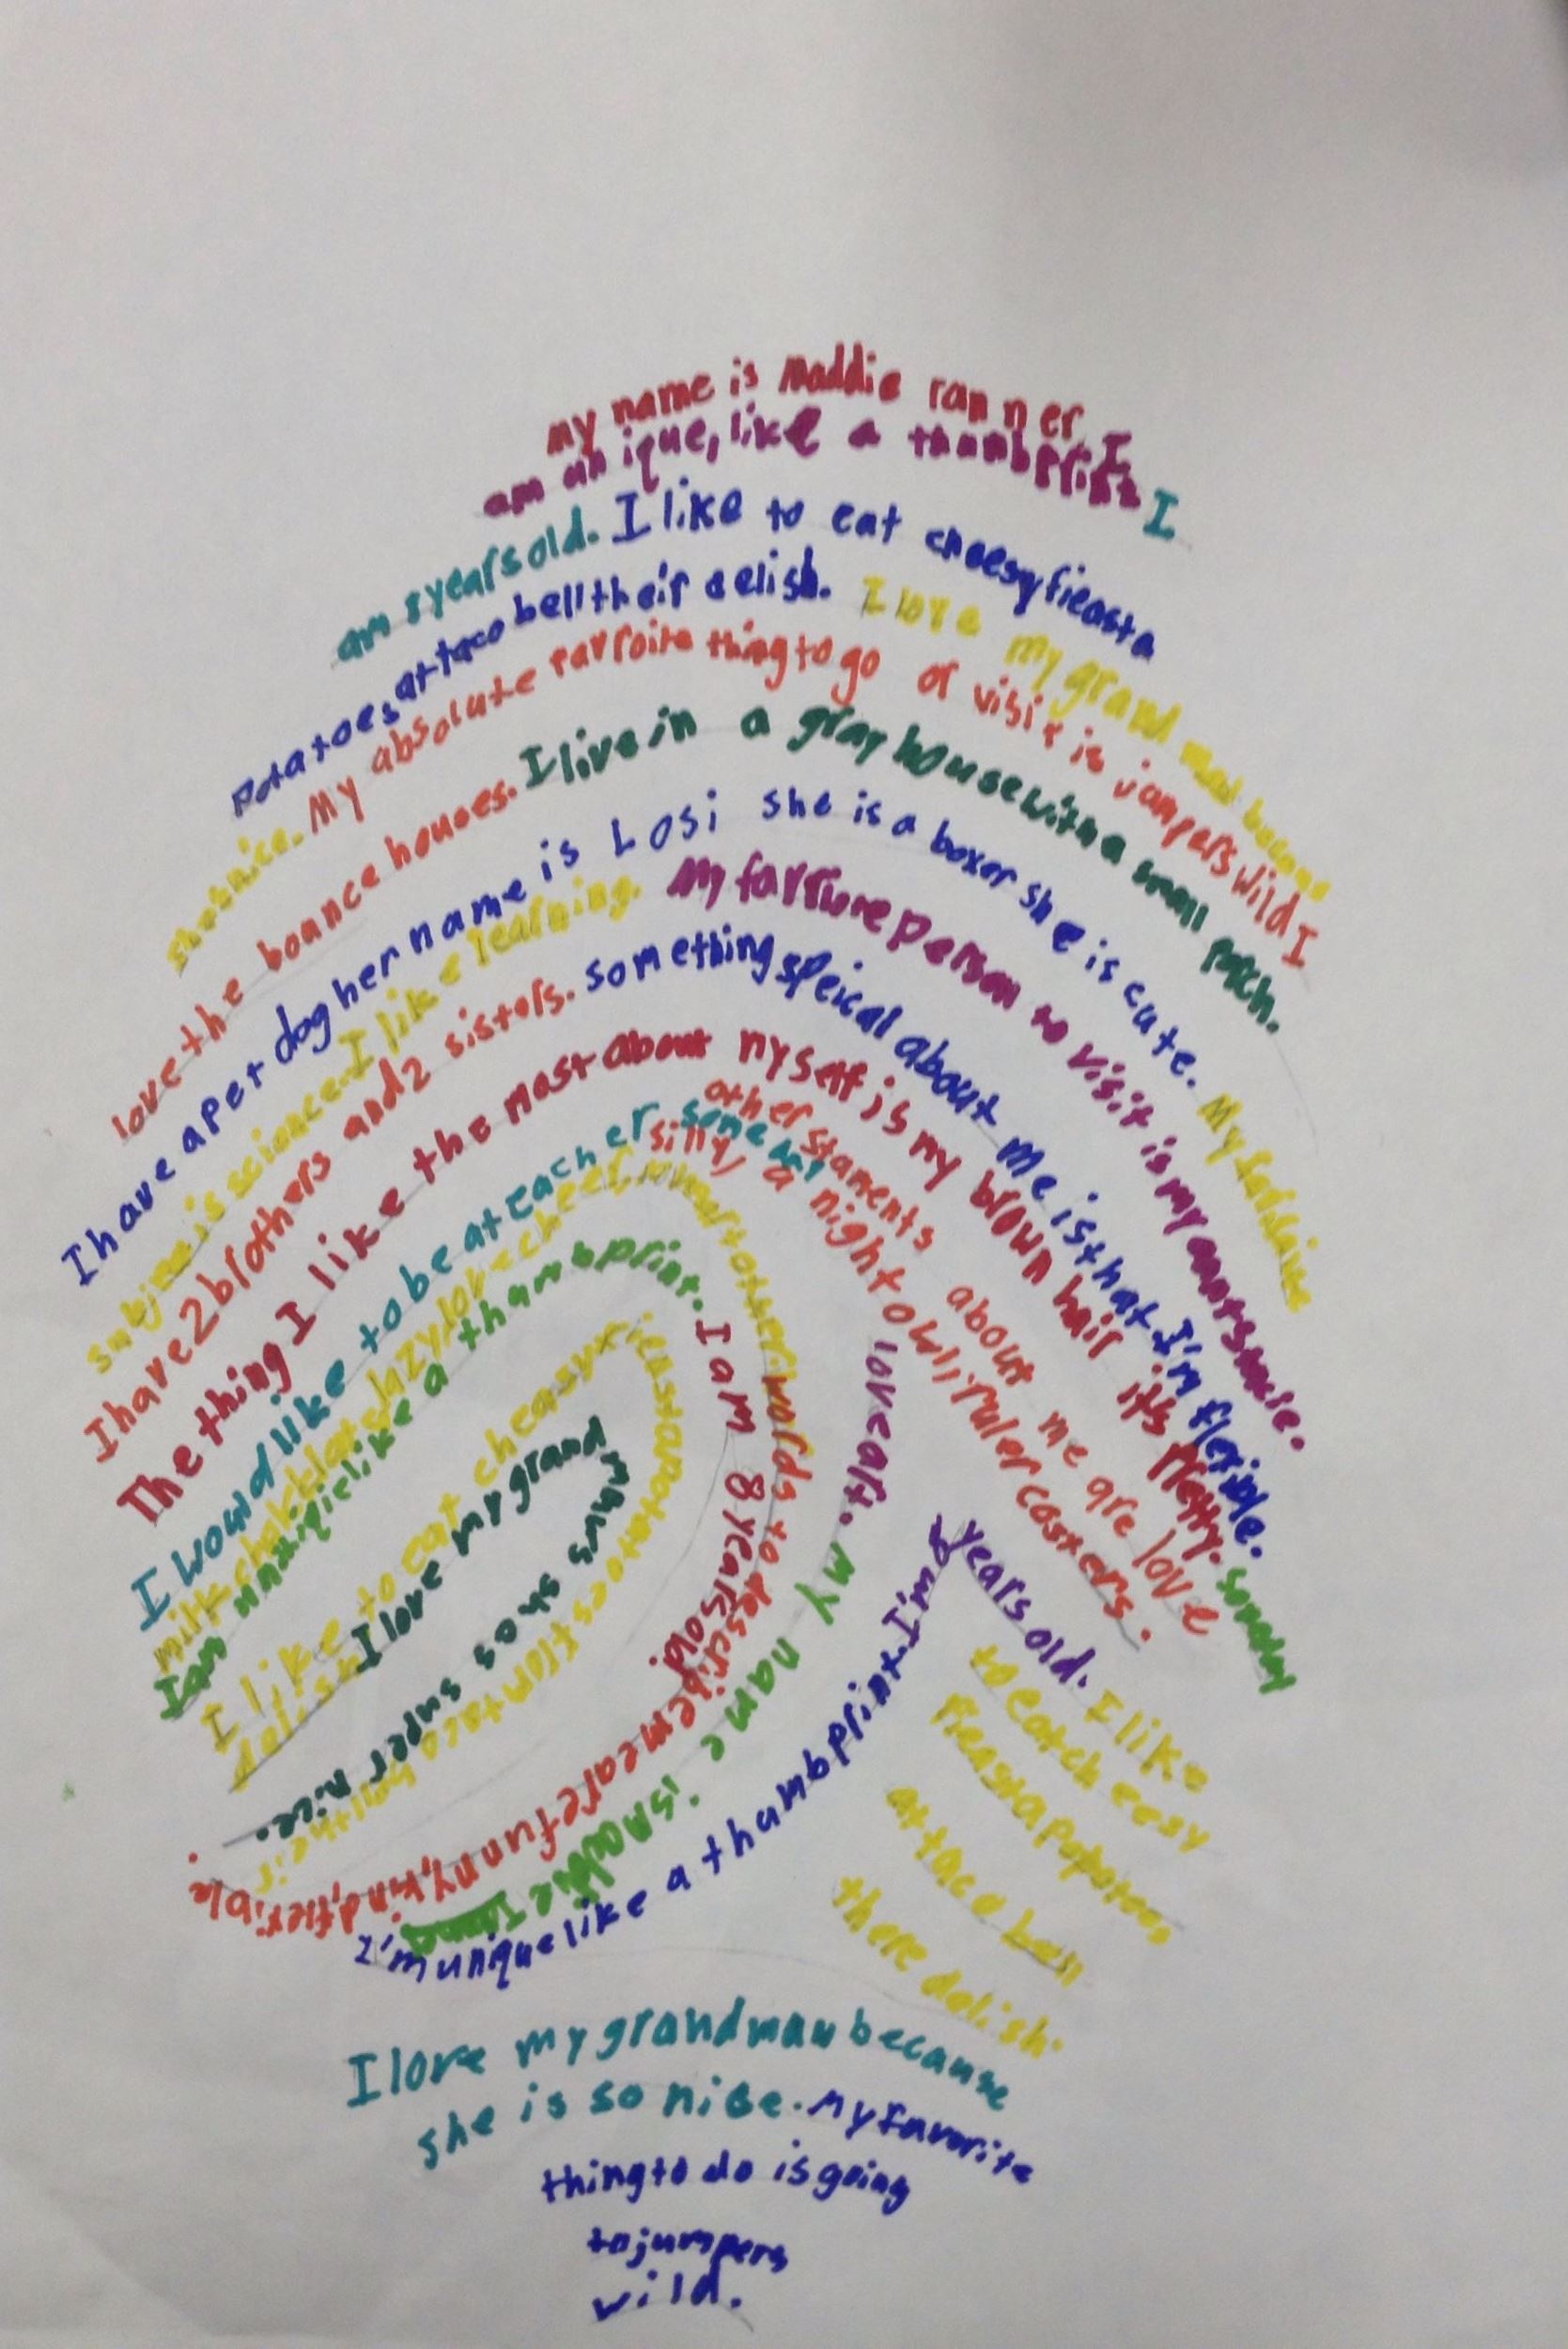 my name is Maddie ranner, I
am unique, like a thumbprint I
am 8 years old. I like to eat cheesy fieasta
potatoes at taco bell their delish. I love my grand mau becaus
shes nice. My absolute favroite thing to go or visit is jumpers wild I
love the bounce houses. I live in a gray house with a small porch.
I have a pet dog her name is Losi she is a boxer she is cute. My
subject is science. I like learning. My person to visit is my aunt
I have 2 brothers and 2 sisters. something speical about me is that I'm flexible.
The thing I like the most about myself is my brown hair it's pretty. someday
I woud like to be at teacher. some
other staments about me are love
silly, a night owl, ruler costers.
milk lazy love cheer,
other worlds to describe me are funny, kind, flexible.
I am like a thumbprint. I am 8 years old.
I like to eat cheasy fieasta potatoes from taco their
delish I love my grand maus shes super nice.
love art. my name is Maddie
I'm unique like a thumbprint. I'm 8
years old. I like
to eat ch eesy
fieasta potatoes
at taco bell
there delish.
I love my grandmau because
she is so nice. My favorite
thing to do is going
to jumpers
wild.